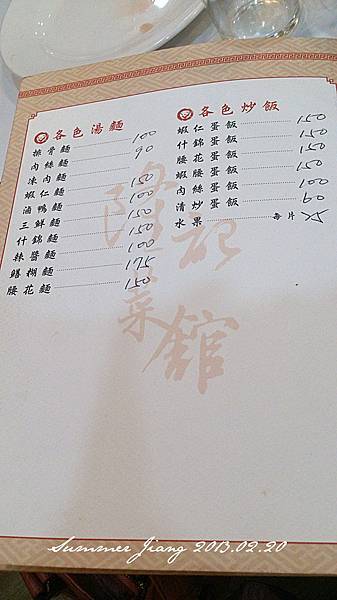 各色湯麵
排骨麵 100
肉絲麵 90
凍肉麵
蝦仁麵 150
滷鴨麵 100
三鮮麵 150
什錦麵 150
辣醬麵 100
鱔糊麵 175
腰花麵 150
各色炒飯
蝦仁蛋飯 150
什錦蛋飯 150
腰花蛋飯 150
蝦腰蛋飯 150
肉絲蛋飯 100
清炒蛋飯 60
水果 每片
隆記菜館
Summer Jiang 2013.02.20